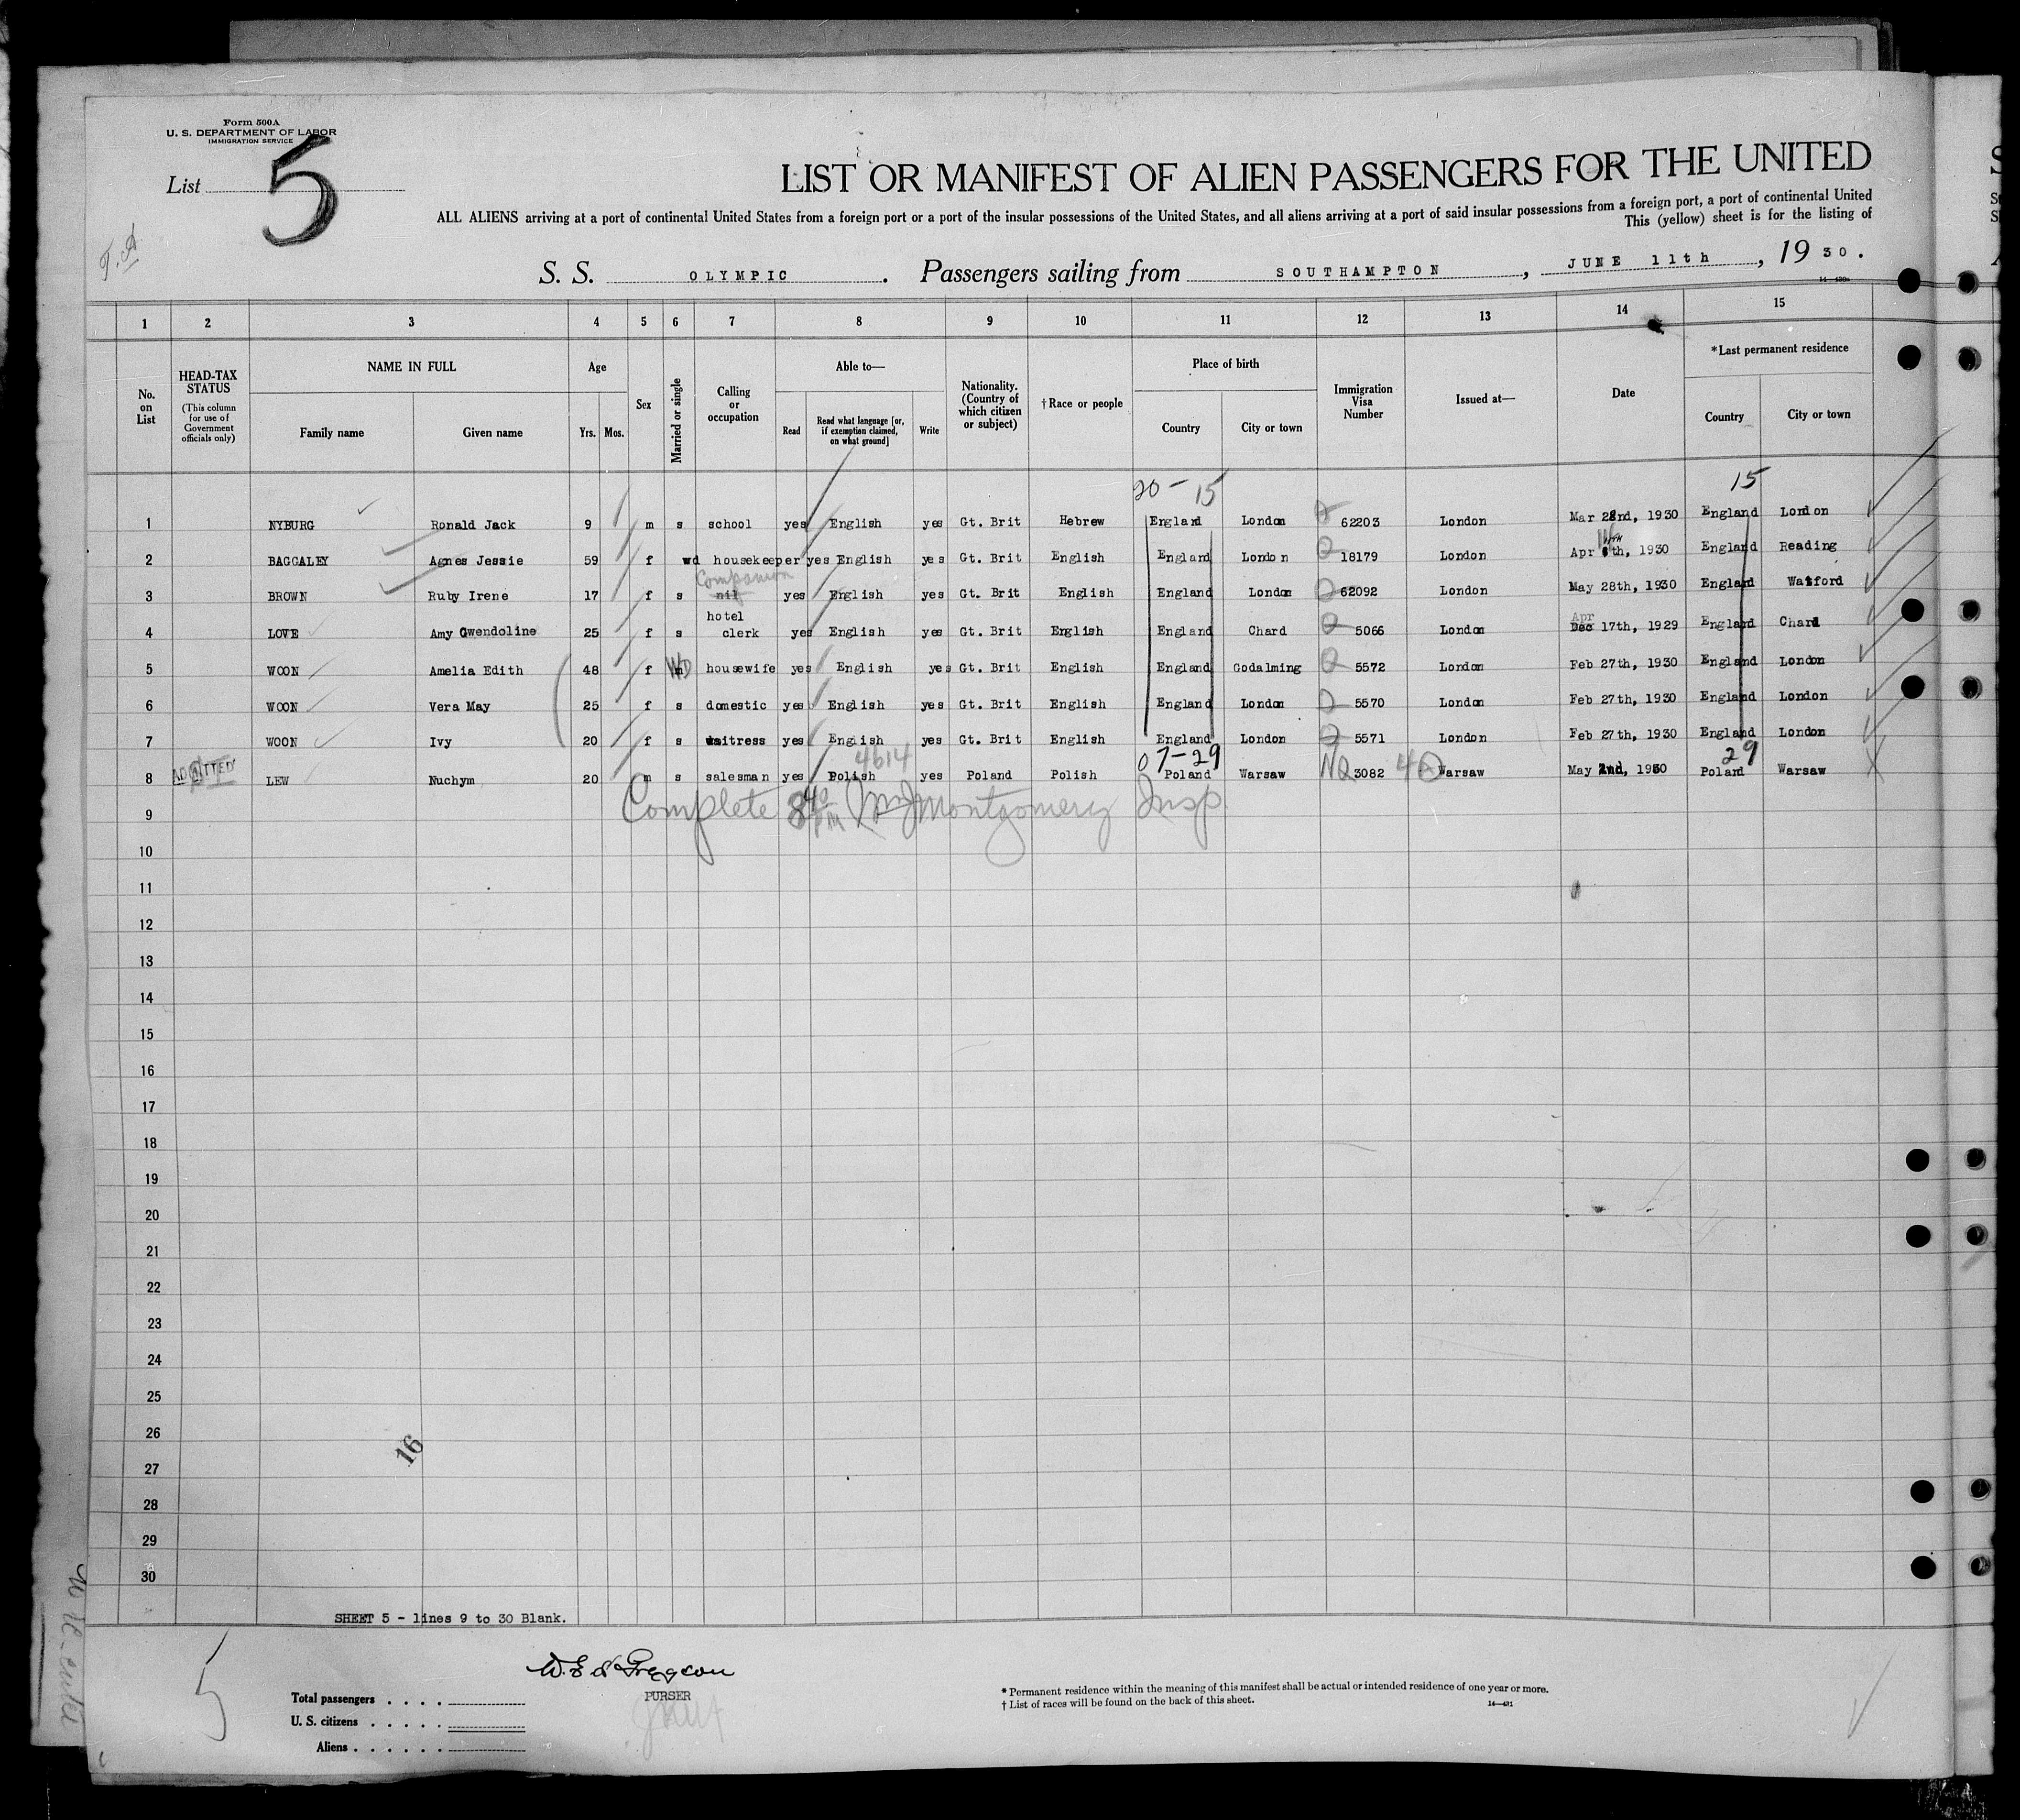 Form 500A
U. S. DEPARTMENT OF LABOR
IMMIGRATION SERVICE
List 5
LIST OR MANIFEST OF ALIEN PASSENGERS FOR THE UNITED
ALL ALIENS arriving at a port of continental United States from a foreign port or a port of the insular possessions of the United States, and all aliens arriving at a port of said insular possessions from a foreign port, a port of continental United
This (yellow) sheet is for the listing of
S. S. OLYMPIC. Passengers sailing from SOUTHAMPTON, JUNE 11th, 19 30.
1 2 3 4 5 6 7 8 9 10 11 12 13 14 15
No. on List
HEAD-TAX STATUS
(This column for use of Government officials only)
NAME IN FULL
Family name Given name
Age
Yrs. Mos.
Sex
Married or single
Calling or occupation
Able to—
Read Read what language [or, if exemption claimed, on what ground] Write
Nationality. (Country of which citizen or subject)
†Race or people
Place of birth
Country City or town
Immigration Visa Number
Issued at—
Date
*Last permanent residence
Country City or town
20-15 15
1 NYBURG Ronald Jack 9 m s school yes English yes Gt. Brit Hebrew England London 62203 London Mar 22nd, 1930 England London
2 BAGGALEY Agnes Jessie 59 f wd housekeeper yes English yes Gt. Brit English England London 18179 London Apr th, 1930 England Reading
Companion
3 BROWN Ruby Irene 17 f s nil yes English yes Gt. Brit English England London 62092 London May 28th, 1930 England Watford
hotel Apr
4 LOVE Amy Gwendoline 25 f s clerk yes English yes Gt. Brit English England Chard 5066 London Dec 17th, 1929 England Chard
5 WOON Amelia Edith 48 f WD housewife yes English yes Gt. Brit English England Godalming 5572 London Feb 27th, 1930 England London
6 WOON Vera May 25 f s domestic yes English yes Gt. Brit English England London 5570 London Feb 27th, 1930 England London
7 WOON Ivy 20 f s waitress yes English yes Gt. Brit English England London 5571 London Feb 27th, 1930 England London
4614 07-29 29
8 ADMITTED LEW Nuchym 20 m s salesman yes Polish yes Poland Polish Poland Warsaw NQ 3082 Warsaw May 2nd, 1930 Poland Warsaw
9 Complete 8 40 PM Montgomery Insp
10
11
12
13
14
15
16
17
18
19
20
21
22
23
24
25
26
16
27
28
29
30
SHEET 5 - lines 9 to 30 Blank.
5
PURSER
Total passengers
U. S. citizens
Aliens
* Permanent residence within the meaning of this manifest shall be actual or intended residence of one year or more.
† List of races will be found on the back of this sheet.